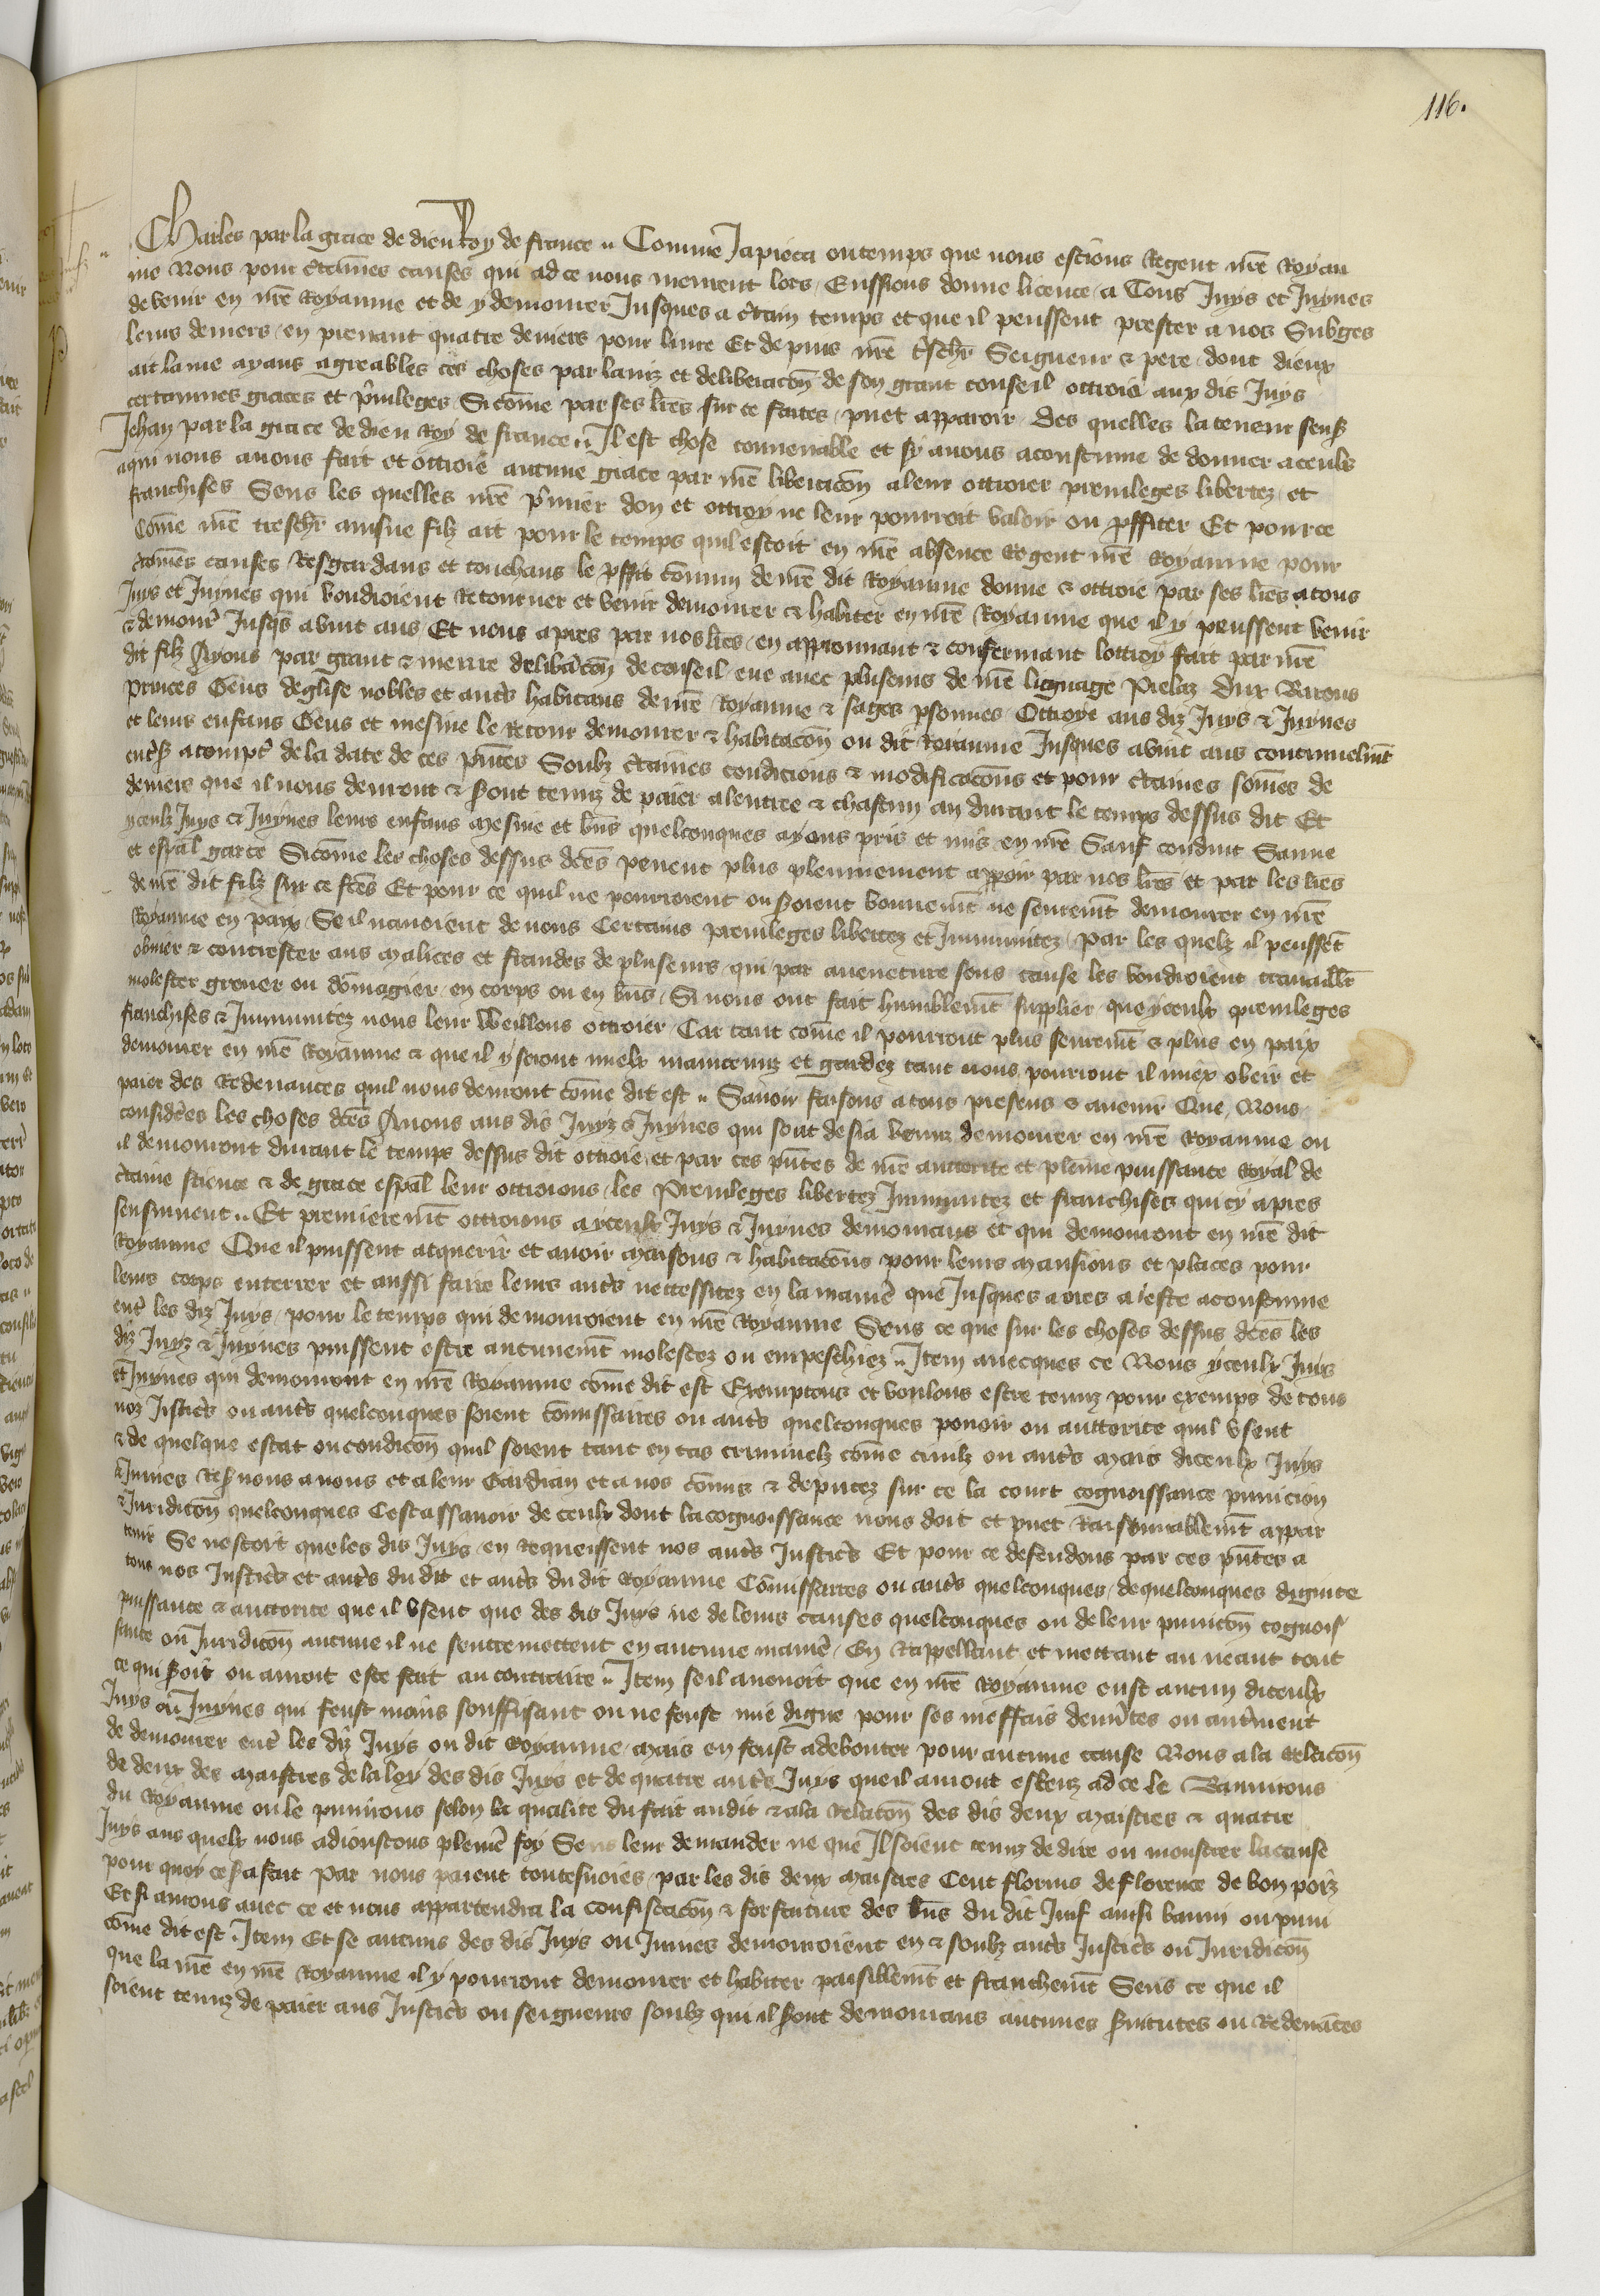 116.
Charles par la grace de dieu Roy de france Comme Japieca ou temps que nous estions Regent nre Royau
me Nous pour ctaines causes qui ad ce nous meurent lors Eussions donne licence a Tous Juys et Juyues
de venir en nre Royaume et de y demourer Jusques a ctain temps et que il peussent prester a nos Subges
leurs deniers en prenant quatre deniers pour livre Et depuis nre tscher Seigneur & pere dont dieux
ait lame ayans agreables ces choses par lauiz et deliberacon de son grant conseil ottroie aux dis Juys
certainnes graces et privileges Si come par ses lres sur ce faites puet apparoir Des quelles la teneur sensuit
Jehan par la grace de dieu Roy de france Il est chose convenable et sy avons acoustume de donner a ceulx
a qui nous avons fait et ottroie aucune grace par nre liberacon a leur ottroier previleges libertez et
franchises Sens les quelles nre pmier don et ottroy ne leur pourroit valoir ou pffiter Et pour ce
Come nre treschr ainsne filz ait pour le temps quil estoit en nre absence Regent nre Royaume pour
ctaines causes Resgardans et touchans le pffit comun de nre dit Royaume donne & ottroie par ses lres a tous
Juys et Juyues qui voudroient Retourner et venir demourer & habiter en nre Royaume que il y peussent venir
& demour Jusqs a vint ans Et nous apres par nos lres en approuvant & confermant lottroy fait par nre
dit filz Ayons par grant & meure delibacon de conseil eue avec pluseurs de nre lignage Prelaz Dux Barons
princes Gens deglise nobles et auts habitans de nre Royaume & sages psonnes Ottroye aus diz Juys & Juyues
et leurs enfans Gens et mesnie le Retour demourer & habitacon ou dit Royaume Jusques a vint ans continuelmt
entiers a compt de la date de ces pntes Soubz ctaines condicions & modificacons et pour ctaines somes de
deniers que il nous devront & sont tenuz de paier a lentree & chascun an durant le temps dessus dit Et
yceulx Juys & Juyues leurs enfans mesnie et bns quelconques ayons pris et mis en nre Sauf conduit Sauve
et espal garde Si come les choses dessus dces pevent plus plennement appoir par nos lres et par les lres
de nre dit filz sur ce fces Et pour ce quil ne pourroient ou soient bonnemt ne seuremt demourer en nre
Royaume en paix Se il navoient de nous Certains previleges libertez et Immunitez par les quelz il peussent
obvier & contrester aus malices et fraudes de pluseurs qui par aveneture sens cause les voudroient travaillr
molester grever ou domagier en corps ou en bns Si nous ont fait humblemt supplier que yceulx previleges
franchises & Immunitez nous leur Weillons ottroier Car tant come il pourront plus seuremt & plus en paix
demourer en nre Royaume & que il y seront mielx maintenuz et gardez tant nous pourront il miex obeir et
paier des Redevances quil nous devront come dit est Savoir faisons a tous presens & avenir Que Nous
considrees les choses dces Avons aus dis Juyz & Juyues qui sont desia venuz demourer en nre Royaume ou
il demourront durant le temps dessus dit ottroie et par ces pntes de nre auctorite et pleine puissance Royal de
ctaine science & de grace espal leur ottroions les Previleges libertez Immunitez et franchises qui cy apres
sensuivent Et premieremt ottroions a yceulx Juys & Juyues demourans et qui demourront en nre dit
Royaume Que il puissent acquerir et avoir Maisons & habitacons pour leurs Mansions et places pour
leurs corps enterrer et aussi faire leurs auts necessitez en la manie que Jusques a ores a este acoustume
ent les diz Juys pour le temps qui demouroient en nre Royaume Sens ce que sur les choses dessus dces les
diz Juyz & Juyues puissent estre aucunemt molestez ou empeschiez Item avecques ce Nous yceulx Juys
et Juyues qui demourront en nre Royaume come dit est Exemptons et voulons estre tenuz pour exemps de tous
noz Jistics ou auts quelconques soient comissaires ou auts quelconques pouoir ou auctorite quil usent
& de quelque estat ou condicon quil soient tant en cas criminelz come civilz ou auts Mais diceulx Juys
& Juiues Resvons a nous et a leur Gardian et a nos comis & deputez sur ce la court cognoissance punicion
& Juridicon quelconques Cest assavoir de ceulx dont la cognoissance nous doit et puet Raisonnablemt appar
tenir Se nestoit que les dis Juys en Requeissent nos auts Justics Et pour ce defendons par ces pntes a
tous nos Justics et auts du dit et auts du dit Royaume Comissaires ou auts quelconques de quelconques dignite
puissance & auctorite que il usent que des dis Juys ne de leurs causes quelconques ou de leur punicon cognois
sance ou Juridicon aucune il ne sentremettent en aucune manie En Rappellant et mettant au neant tout
ce qui soit ou auroit este fait au contraire Item se il avenoit que en nre Royaume eust aucun diceulx
Juys ou Juyues qui feust moins souffisant ou ne feust mie digne pour ses meffais demerites ou autrement
de demourer ent les diz Juys ou dit Royaume Mais en feust a debouter pour aucune cause Nous a la Relacon
de deux des Maistres de la loy des dis Juys et de quatre auts Juys que il auront esleuz ad ce le Bannirons
du Royaume ou le punirons selon la qualite du fait audit & a la Relacon des dis deux Maistres & quatre
Juys aus quelx nous adioustons pleniere foy Sens leur demander ne que Il soient tenuz de dire ou monstrer la cause
pour quoy ce sa fait Par nous paient toutesvoies par les dis deux Maistres Cent florins de florence de bon poiz
Et si aurons avec ce et nous appartendra la confiscacon & forfaiture des bns du dit Juif ainsi banni ou puni
come dit est Item Et se aucuns des dis Juys ou Juiues demouroient en & soubz auts Justics ou Juridicon
que la nre en nre Royaume il y pourront demourer et habiter paisiblemt et franchemt Sens ce que il
soient tenuz de paier aus Justics ou seigneurs soubz qui il sont demourans aucunes svitutes ou Redevances